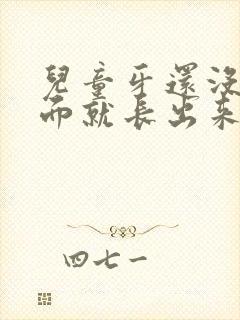 兒童牙還沒
而就長出來
四七一